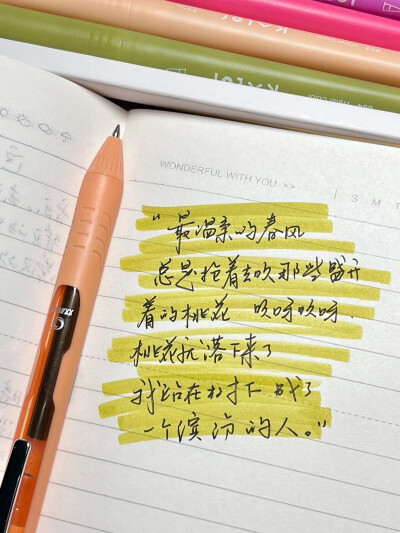 KACO
WONDERFUL WITH YOU >>
S M T
"最温柔的春风
总是抢着去吹那些盛开
着的桃花 吹呀吹呀.
桃花就落下来了
我站在树下 成了
一个缤纷的人。"